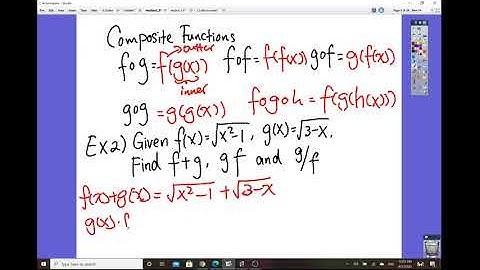 Composite Functions
outter
f∘g = f(g(x)) f∘f = f(f(x)) g∘f = g(f(x))
inner
g∘g = g(g(x)) f∘g∘h = f(g(h(x)))
Ex2) Given f(x)=√(x²-1), g(x)=√(3-x).
Find f+g, gf and g/f
f(x)+g(x) = √(x²-1) + √(3-x)
g(x)·f